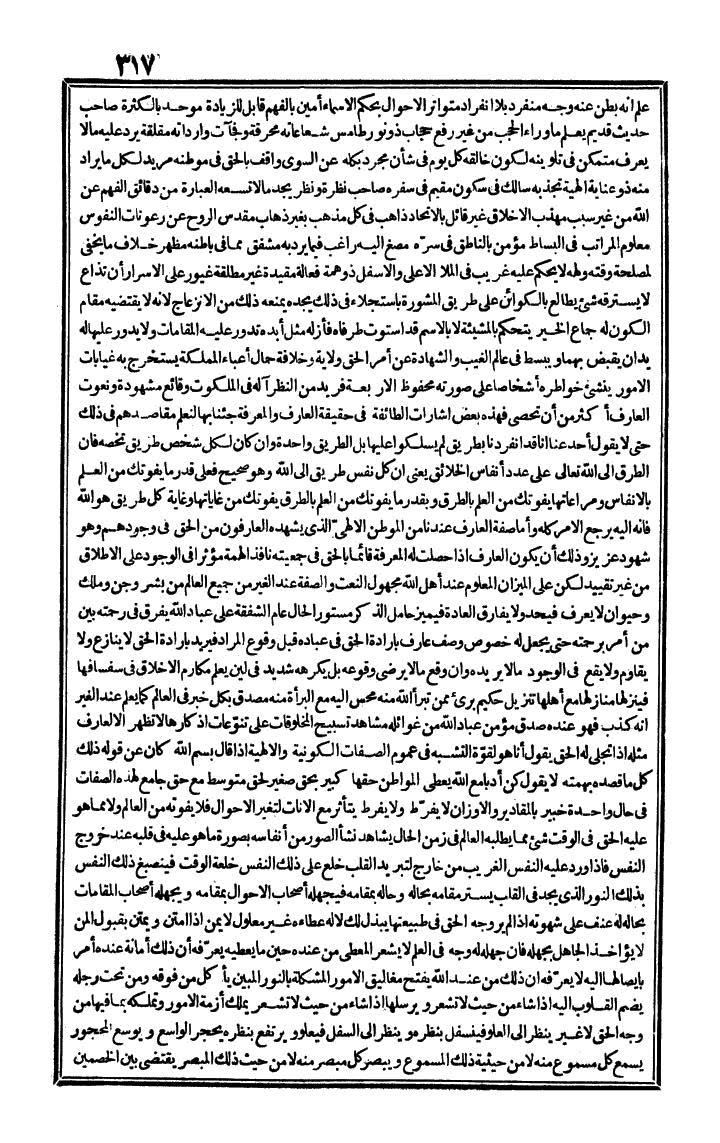 ٣١٧
علم انه بطن عنه وجه منفرد بلا انفراد متواتر الاحوال بحكم الاسماء أمين بالفهم قابل للزيادة موحد بالكثرة صاحب
حديث قديم يعلم ما وراء الحجب من غير رفع حجاب ذو نور طامس شعاعاته محرقة وفجآت وارداته مقلقة يرد عليه مالا
يعرف متمكن فى تلوينه لكون خالقه كل يوم فى شأن مجرد بكله عن السوى واقف بالحق فى موطنه مريد لكل ما يراد
منه ذو عناية الهية تجذبه سالك فى سكون مقيم فى سفره صاحب نظرة ونظر يجد مالا تسعه العبارة من دقائق الفهم عن
الله من غير سبب مهذب الاخلاق غير قائل بالاتحاد ذاهب فى كل مذهب بغير ذهاب مقدس الروح عن رعونات النفوس
معلوم المراتب فى البساط مؤمن بالناطق فى سرّه مصغ اليه راغب فيما يرد به مشفق مما فى باطنه مظهر خلاف ما يخفى
لمصلحة وقته وله لا يحكم عليه غريب فى الملا الاعلى والاسفل ذو همة فعالة مقيدة غير مطلقة غيور على الاسرار أن تذاع
لا يسترقه شئ يطالع بالكوائن على طريق المشورة باستجلاء فى ذلك يجده يمنعه ذلك من الانزعاج لانه لا يقتضيه مقام
الكون له جماع الخير يتحكم بالمشيئة لا بالاسم قد استوت طرفاه فأزله مثل أبده تدور عليه المقامات ولا يدور عليها له
يدان يقبض بهما ويبسط فى عالم الغيب والشهادة عن أمر الحق ولاية وخلافة حمال أعباء المملكة يستخرج به غيابات
الامور ينشئ خواطره أشخاصا على صورته محفوظ الاربعة فريد من النظر آله فى الملكوت وقائع مشهودة ونعوت
العارف أكثر من أن تحصى فهذه بعض اشارات الطائفة فى حقيقة العارف والمعرفة جئنا بها لنعلم مقاصدهم فى ذلك
حتى لا يقول أحد عنا اناقد انفردنا بطريق لم يسلكوا عليها بل الطريق واحدة وان كان لكل شخص طريق تخصه فان
الطرق الى الله تعالى على عدد أنفاس الخلائق يعنى ان كل نفس طريق الى الله وهو صحيح فعلى قدر ما يفوتك من العلم
بالانفاس ومراعاتها يفوتك من العلم بالطرق وبقدر ما يفوتك من العلم بالطرق يفوتك من غاياتها وغاية كل طريق هو الله
فانه اليه يرجع الامر كله وأما صفة العارف عندنا من الموطن الالهىّ الذى يشهده العارفون من الحق فى وجودهم وهو
شهود عزيز وذلك أن يكون العارف اذا حصلت له المعرفة قائما بالحق فى جمعيته نافذ الهمة مؤثرا فى الوجود على الاطلاق
من غير تقييد لكن على الميزان المعلوم عند أهل الله مجهول النعت والصفة عند الغير من جميع العالم من بشر وجن وملك
وحيوان لا يعرف فيحد ولا يفارق العادة فيميز خامل الذكر مستور الحال عام الشفقة على عباد الله يفرق فى رحمته بين
من أمر برحمته حتى يجعل له خصوص وصف عارف بارادة الحق فى عباده قبل وقوع المراد فيريد بارادة الحق لا ينازع ولا
يقاوم ولا يقع فى الوجود مالا يريده وان وقع مالا يرضى وقوعه بل يكرهه شديد فى لين يعلم مكارم الاخلاق فى سفسافها
فينزلها منازلها مع أهلها تنزيل حكيم برئ ممن تبرأ الله منه محسن اليه مع البرأة منه مصدق بكل خبر فى العالم كما يعلم عند الغير
انه كذب فهو عنده صدق مؤمن عباد الله من غوائله مشاهد تسبيح المخلوقات على تنوّعات اذكارها لا تظهر الا لعارف
مثله اذا تجلى له الحق يقول أناهو لقوّة التشبه فى عموم الصفات الكونية والالهية اذا قال بسم الله كان عن قوله ذلك
كل ما قصده بهمته لا يقول كن أدبا مع الله يعطى المواطن حقها كبير بحق صغير لحق متوسط مع حق جامع لهذه الصفات
فى حال واحدة خبير بالمقادير والاوزان لا يفرّط ولا يفرط يتأثر مع الانات لتغير الاحوال فلا يفوته من العالم ولا مما هو
عليه الحق فى الوقت شئ مما يطلبه العالم فى زمن الحال يشاهد نشأ الصور من أنفاسه بصورة ما هو عليه فى قلبه عند خروج
النفس فاذا ورد عليه النفس الغريب من خارج لتبريد القلب خلع على ذلك النفس خلعة الوقت فينصبغ ذلك النفس
بذلك النور الذى يجد فى القلب يستر مقامه بحاله وحاله بمقامه فيجهله أصحاب الاحوال بمقامه ويجهله أصحاب المقامات
بحاله له عنف على شهوته اذا لم ير وجه الحق فى طبيعتها يبذل لك لا له عطاءه غير معلول لا يمن اذا امتن ويمتن بقبول المن
لا يؤاخذ الجاهل بجهله فان جهله له وجه فى العلم لا يشعر المعطى من عنده حين ما يعطيه يعرّفه أن ذلك أمانة عنده أمر
بايصالها اليه لا يعرّفه ان ذلك من عند الله يفتح مغاليق الامور المشكلة بالنور المبين يأكل من فوقه ومن تحت رجله
يضم القلوب اليه اذا شاء من حيث لا تشعر ويرسلها اذا شاء من حيث لا تشعر يملك أزمة الامور وتملكه بما فيها من
وجه الحق لا غير ينظر الى العلو فيسفل بنظره ينظر الى السفل فيعلو ويرتفع بنظره يحجر الواسع ويوسع المحجور
يسمع كل مسموع منه لا من حيثية ذلك المسموع ويبصر كل مبصر منه لا من حيث ذلك المبصر يقتضى بين الخصمين